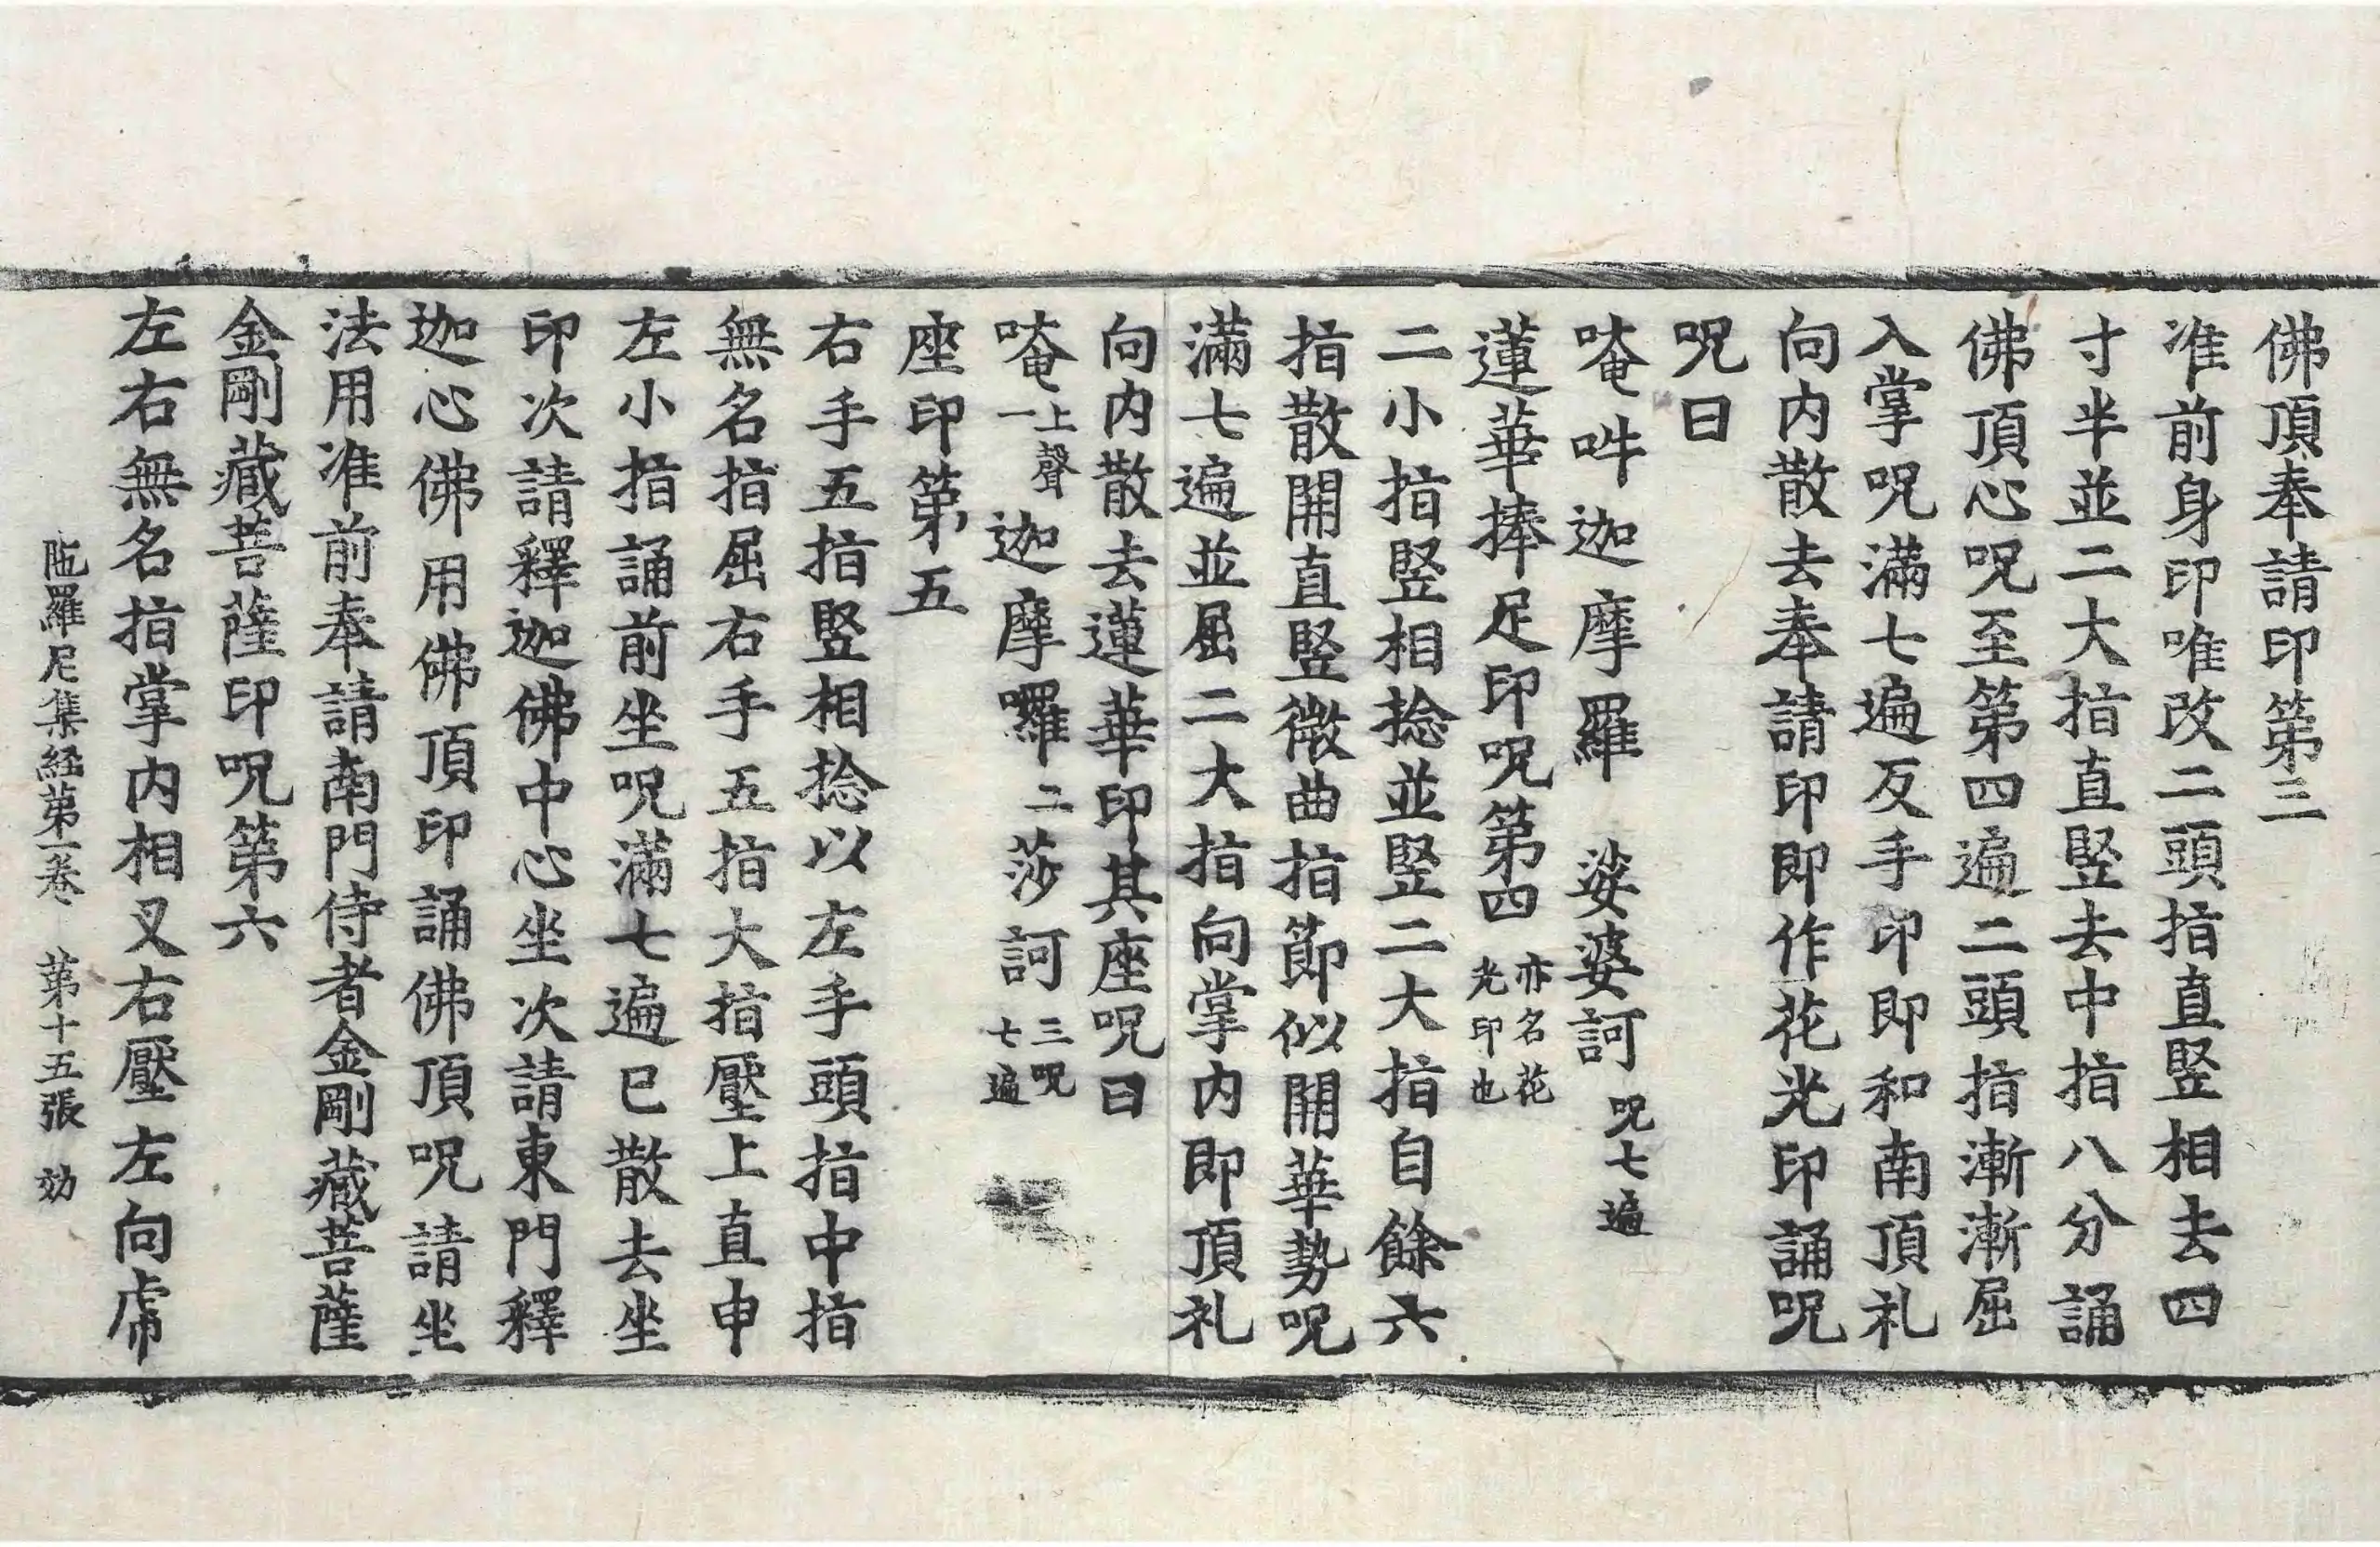 佛頂奉請印第三
准前身印唯改二頭指直竪相去四
寸半並二大指直竪去中指八分誦
佛頂心呪至第四遍二頭指漸漸屈
入掌呪滿七遍反手印即和南頂礼
向内散去奉請印即作花光印誦呪
呪曰
唵吽迦摩羅 娑婆訶 呪七遍
蓮華捧足印呪第四 亦名花光印也
二小指竪相捻並竪二大指自餘六
指散開直竪微曲指節似開華勢呪
滿七遍並屈二大指向掌内即頂礼
向内散去蓮華印其座呪曰
唵 上聲一 迦摩囉 二 莎訶 三呪七遍
座印第五
右手五指竪相捻以左手頭指中指
無名指屈右手五指大指壓上直申
左小指誦前坐呪滿七遍已散去坐
印次請釋迦佛中心坐次請東門釋
迦心佛用佛頂印誦佛頂呪請坐
法用准前奉請南門侍者金剛藏菩薩
金剛藏菩薩印呪第六
左右無名指掌内相叉右壓左向虎
陁羅尼集經第一卷 第十五張 効